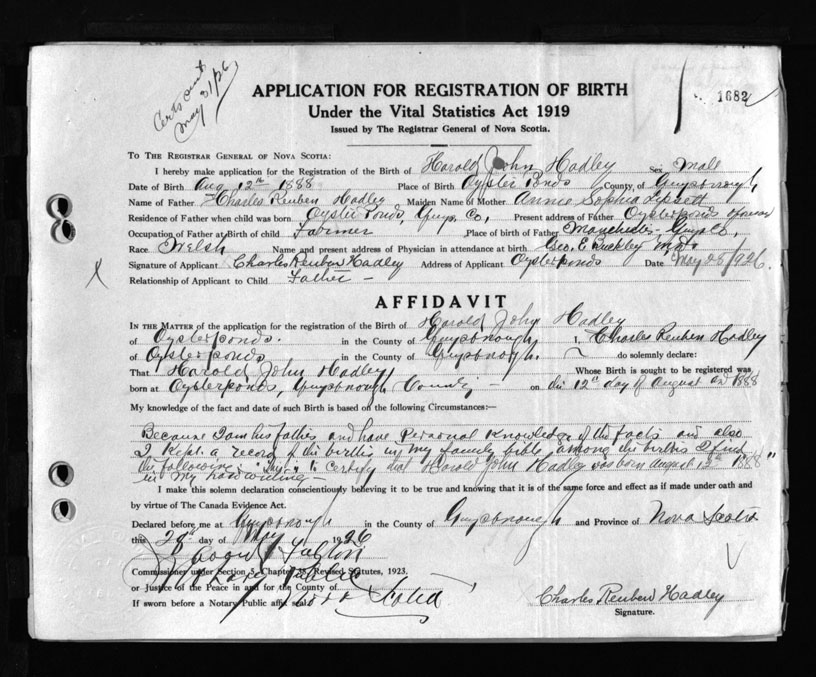 Certs sent
May 31/26
1682
APPLICATION FOR REGISTRATION OF BIRTH
Under the Vital Statistics Act 1919
Issued by The Registrar General of Nova Scotia.
TO THE REGISTRAR GENERAL OF NOVA SCOTIA:
I hereby make application for Registration of the Birth of Harold John Hadley Sex Male
Date of Birth Aug 12th 1888 Place of Birth Oyster Ponds County, of Guysborough
Name of Father Charles Reuben Hadley Maiden Name of Mother Annie Sophia Lipsett
Residence of Father when child was born Oyster Ponds, Guys. Co., Present address of Father Oysterponds
Occupation of Father at Birth of child Farmer Place of birth of Father Manchester, Guys Co,
Race Welsh Name and present address of Physician in attendance at birth Geo. E. Buckley M.D.
Signature of Applicant Charles Reuben Hadley Address of Applicant Oysterponds Date May 28/926.
Relationship of Applicant to Child Father —
AFFIDAVIT
IN THE MATTER of the application for the registration of the Birth of Harold John Hadley
of Oysterponds. in the County of Guysborough, I, Charles Reuben Hadley
of Oysterponds in the County of Guysborough. do solemnly declare:
That Harold John Hadley Whose Birth is sought to be registered was
born at Oysterponds, Guysborough County — on the 12th day of August AD 1888
My knowledge of the fact and date of such Birth is based on the following Circumstances:—
Because I am his father and have Personal Knowledge of the facts and also
I Kept a record of the births in my family bible, among the births I find
the following: "This is to Certify that Harold John Hadley was born August 12th 1888"
in my handwriting —
I make this solemn declaration conscientiously believing it to be true and knowing that it is of the same force and effect as if made under oath and
by virtue of The Canada Evidence Act.
Declared before me at Guysborough in the County of Guysborough and Province of Nova Scotia
this 28th day of May 1926
Fulton
Commissioner under Section 5, Chapter Revised Statutes, 1923.
Notary Public
or Justice of the Peace in and for the County of
Nova Scotia
If sworn before a Notary Public affix seal
Charles Reuben Hadley
Signature.